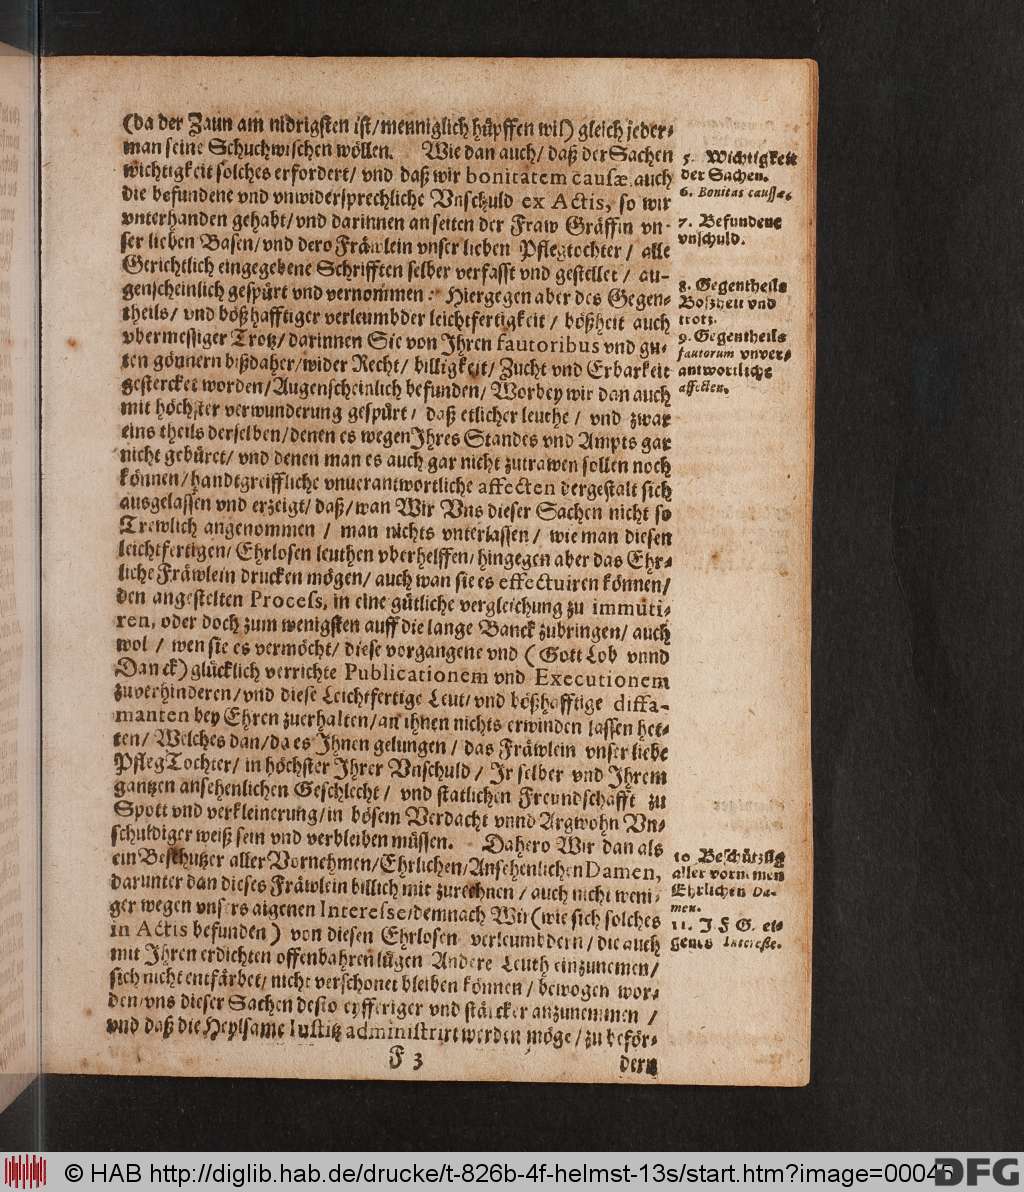 (da der Zaun am nidrigsten ist/menniglich hüpffen wil) gleich jeder-
man seine Schuchwischen wöllen. Wie dan auch/ daß der Sachen
wichtigkeit solches erfordert/ vnd daß wir bonitatem causæ auch
die befundene vnd vnwidersprechliche Vnschuld ex Actis, so wir
vnterhanden gehabt/vnd darinnen an seiten der Fraw Gräffin vn-
ser lieben Basen/vnd dero Fräwlein vnser lieben Pflegtochter/ alle
Gerichtlich eingegebene Schrifften selber verfasst vnd gestellet/ au-
genscheinlich gespürt vnd vernommen: Hiergegen aber des Gegen-
theils/ vnd bößhafftiger verleumbder leichtfertigkeit/ bößheit auch
vbermessiger Trotz/darinnen Sie von Ihren fautoribus vnd gu-
ten gönnern bißdaher/wider Recht/ billigkeit/ Zucht vnd Erbarkeit
gestercket worden/Augenscheinlich befunden/ Worbey wir dan auch
mit höchster verwunderung gespürt/ daß etlicher leuthe/ vnd zwar
eins theils derselben/denen es wegen Ihres Standes vnd Ampts gar
nicht gebüret/ vnd denen man es auch gar nicht zutrawen sollen noch
können/handtgreiffliche vnuerantwortliche affecten dergestalt sich
ausgelassen vnd erzeigt/ daß/wan Wir Vns dieser Sachen nicht so
Trewlich angenommen/ man nichts vnterlassen/ wie man diesen
leichtfertigen/ Ehrlosen leuthen vberhelffen/hingegen aber das Ehr-
liche Fräwlein drucken mögen/ auch wan sie es effectuiren können/
den angestelten Process, in eine gütliche vergleichung zu immuti-
ren, oder doch zum wenigsten auff die lange Banck zubringen/ auch
wol/ wen sie es vermöcht/ diese vorgangene vnd (Gott Lob vnnd
Danck) glücklich verrichte Publicationem vnd Executionem
zuverhinderen/vnd diese Leichtfertige Leut/vnd bößhafftige diffa-
manten bey Ehren zuerhalten/an ihnen nichts erwinden lassen het-
ten/ Welches dan/da es Ihnen gelungen/ das Fräwlein vnser liebe
PflegTochter/ in höchster Ihrer Vnschuld/ Ir selber vnd Ihrem
gantzen ansehenlichen Geschlecht/ vnd statlichen Freundschafft zu
Spott vnd verkleinerung/in bösem Verdacht vnnd Argwohn Vn-
schuldiger weiß sein vnd verbleiben müssen. Dahero Wir dan als
ein Beschutzer aller Vornehmen/Ehrlichen/Ansehenlichen Damen,
darunter dan dieses Fräwlein billich mit zurechnen/ auch nicht weni-
ger wegen vnsers aigenen Interesse/demnach Wir (wie sich solches
in Actis befunden) von diesen Ehrlosen verleumbdern/die auch
mit Ihren erdichten offenbahren lügen Andere Leuth einzunemen/
sich nicht entfärbet/ nicht verschonet bleiben können/ bewogen wor-
den/vns dieser Sachen desto eyfferiger vnd stärcker anzunemmen/
vnd daß die Heylsame Iustitz administrirt werden möge/zu beför-
F 3 dern
5. Wichtigkeit
der Sachen.
6. Bonitas caussæ.
7. Befundene
vnschuld.
8. Gegentheils
Boßheit vnd
trotz.
9. Gegentheils
fautorum vnver-
antwortliche
affecten.
10 Beschützug
aller vornemen
Ehrlichen Da-
men.
11. I F G. ei-
genes Interesse.
© HAB http://diglib.hab.de/drucke/t-826b-4f-helmst-13s/start.htm?image=00045
DFG